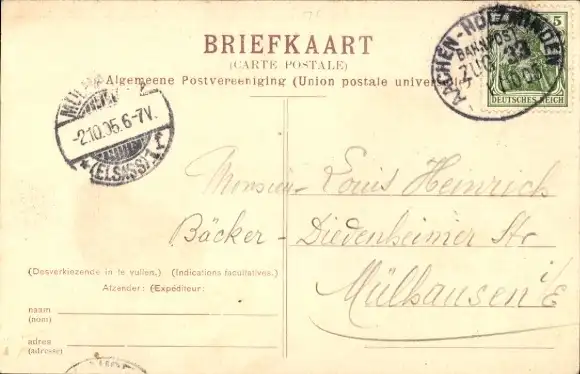 BRIEFKAART
(CARTE POSTALE)
Algemeene Postvereeniging (Union postale universelle)
5
DEUTSCHES REICH
AACHEN-HOLZMINDEN
BAHNPOST
ZUG 33
-2.10.05.6-7V.
(ELSASS)
Monsieur Louis Heinrich
Bäcker - Diedenheimer Str
Mülhausen i/E
(Desverkiezende in te vullen.) (Indications facultatives.)
Afzender: (Expéditeur:)
naam
(nom)
adres
(adresse)